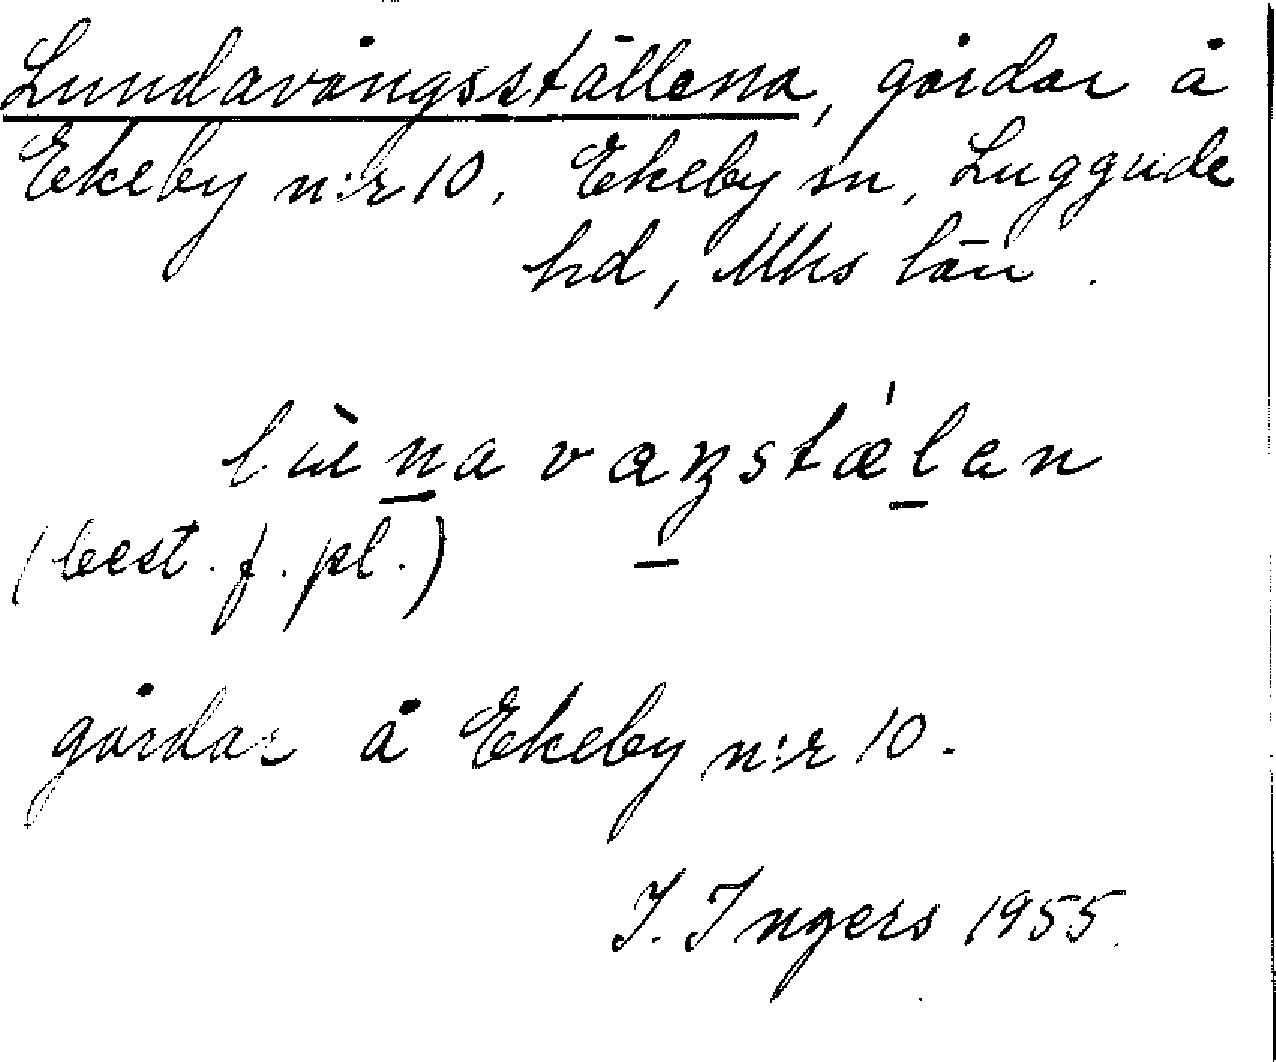 Lundavångsställena, gårdar å
Ekeby n:r 10, Ekeby sn, Luggude
hd, Mhs län.
(best. f. pl.)
gårdar å Ekeby n:r 10.
I. Ingers 1955.